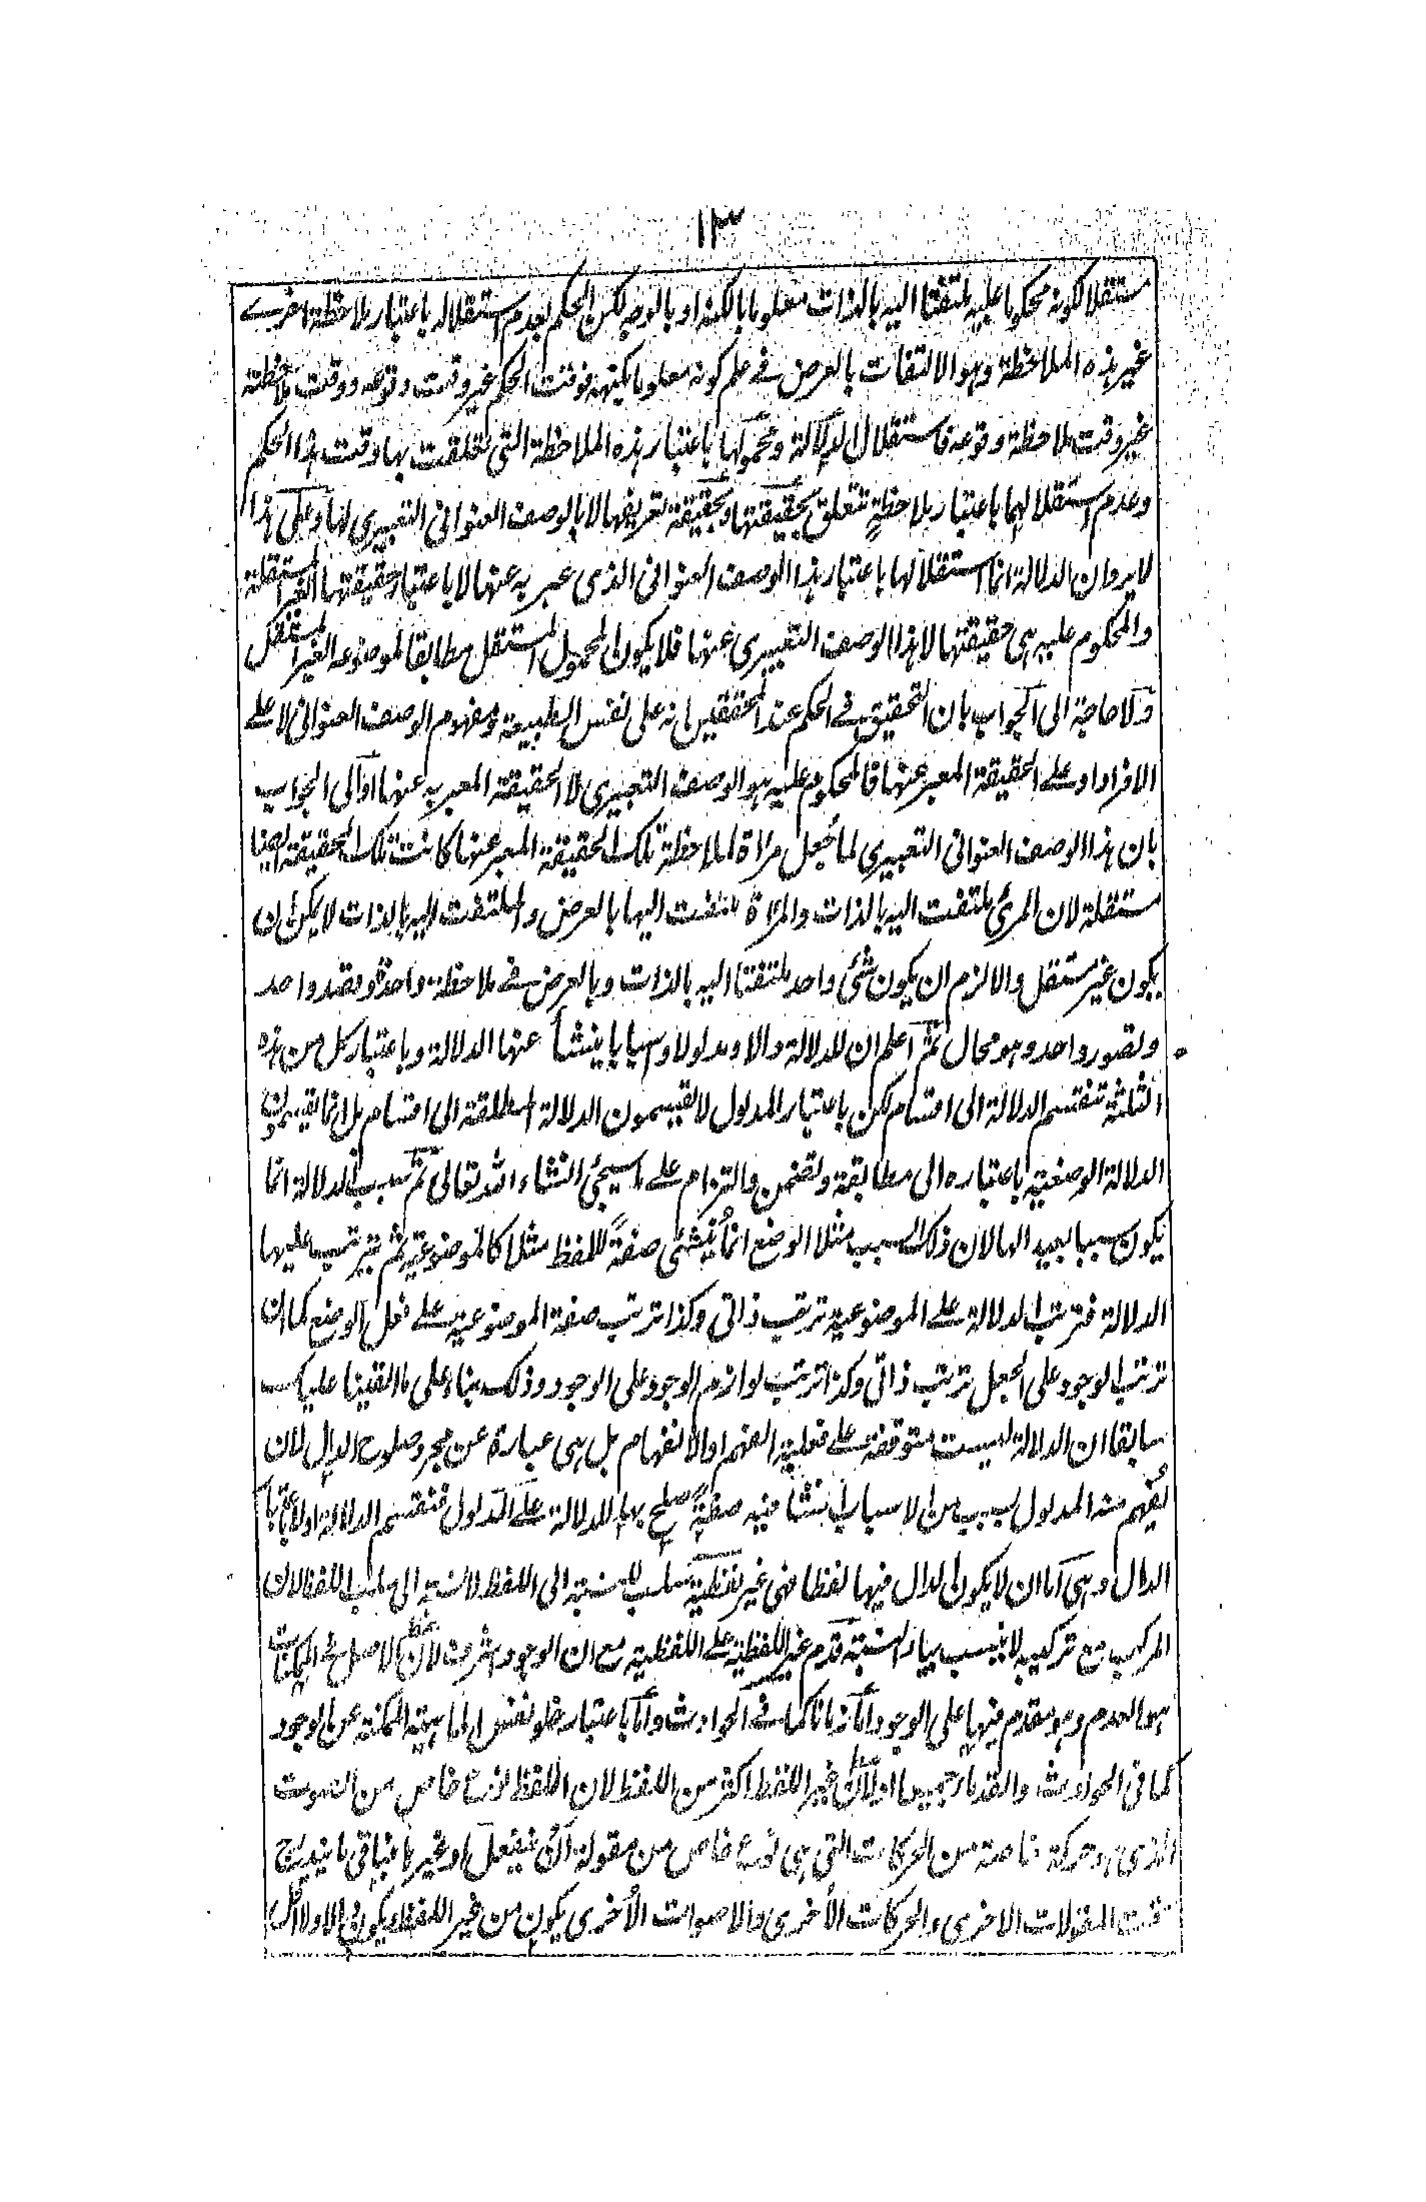 ١٣
مستقلا لكونه محكوما عليه ملتفتا اليه بالذات معلوما بالكنه او بالوجه لكن الحكم بعدم استقلاله باعتبار ملاحظة اخرے
غير هذه الملاحظة وهو الالتفات بالعرض فے علم كونه معلوما بكنهه فوقت الحكم غير وقت وقوعه ووقت ملاحظته
غير وقت ملاحظة وقوعه فاستقلال الدلالة ومحمولها باعتبار هذه الملاحظة التى تعلقت بها وقت هذا الحكم
وعدم استقلالهما باعتبار ملاحظةٍ تتعلق بحقيقتها وبحقيقة تعريفها لا بالوصف العنوانى التعبيرى لها وعلى هذا
لا يرد ان الدلالة انما استقلالها باعتبار هذا الوصف العنوانى الذى عبر به عنها لا باعتبار حقيقتها الغير المستقلة
والمحكوم عليه هى حقيقتها لا هذا الوصف التعبيرى عنها فلا يكون المحمول المستقل مطابقا لموضوعه الغير المستقل
ولا حاجة الى الجواب بان التحقيق فے الحكم عند المحققين انه على نفس الطبيعة ومفهوم الوصف العنوانى لا علے
الافراد او علے الحقيقة المعبر عنها فالمحكوم عليه هو الوصف التعبيرى لا الحقيقة المعبر به عنها او الى الجواب
بان هذا الوصف العنوانى التعبيرى لما جُعل مراة لملاحظة تلك الحقيقة المعبر عنها كانت تلك الحقيقة ايضا
مستقلة لان المرئى ملتفت اليه بالذات والمراة ملتفت اليها بالعرض والملتفت اليه بالذات لا يمكن ان
يكون غير مستقل والا لزم ان يكون شئ واحد ملتفتا اليه بالذات وبالعرض فے ملاحظة واحدة وقصد واحد
وتصور واحد وهو محال ثم اعلم ان للدلالة دالا ومدلولا وسببا ينشأ عنها الدلالة وباعتبار كل من هذه
الثلثة تنقسم الدلالة الى اقسام لكن باعتبار المدلول لا يقسمون الدلالة المطلقة الى اقسام بل انما يقسمون
الدلالة الوضعية باعتباره الى مطابقة وتضمن والتزام علے ما سيجئ انشاء الله تعالى ثم سبب الدلالة انما
يكون سببا بعيدا لها لان ذلك السبب مثلا الوضع انما ينشئ صفةً للفظ مثلا كالموضوعية ثم تترتب عليها
الدلالة فترتب الدلالة علے الموضوعية ترتب ذاتى وكذا ترتب صفة الموضوعية علے فعل الوضع كما ان
ترتب الوجود على الجعل ترتب ذاتى وكذا ترتب لوازم الوجود على الوجود وذلك بناء على ما القينا عليك
سابقا ان الدلالة ليست متوقفة علے فعلية الفهم او الانفهام بل هى عبارة عن مجرد صلوح الدال لان
يُفهم منه المدلول بسبب من الاسباب ينشأ فيه صفةً صلح بها للدلالة علے المدلول فتنقسم الدلالة اولا باعتبار
الدال وهى اما ان لا يكون الدال فيها لفظا فهى غير لفظية سلب للنسبة الى اللفظ لا نسبة الى سلب اللفظ لان
المركب مع تركيبه لا ينسب بياء النسبة قدم غير اللفظية علے اللفظية مع ان الوجود اشرف لان الاصل فے الممكنات
هو العدم وهو مقدم فيها على الوجود اما زمانا كما فے الحوادث واما باعتبار خلو نفس الماهية الممكنة عن الوجود
كما فى الحوادث والقدماء جميعا او لان غير اللفظ اكثر من اللفظ لان اللفظ نوع خاص من الصوت
الذى هو حركة خاصة من الحركات التى هى نوع خاص من مقولة ان ينفعل او غيرها فباقى ما يندرج
تحت المقولات الاخرى والحركات الأخرى والاصوات الأخرى يكون من غير اللفظ ويكون